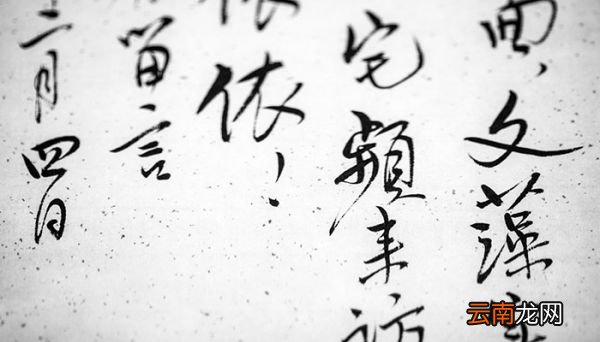 曲，文藻
宅頻来訪
依依！
留言
二月四日
云南龙网